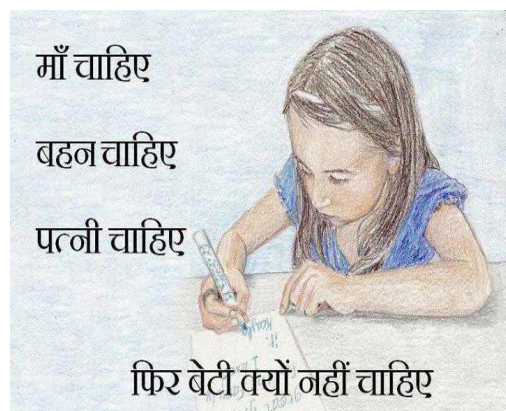 माँ चाहिए
बहन चाहिए
पत्नी चाहिए
फिर बेटी क्यों नहीं चाहिए